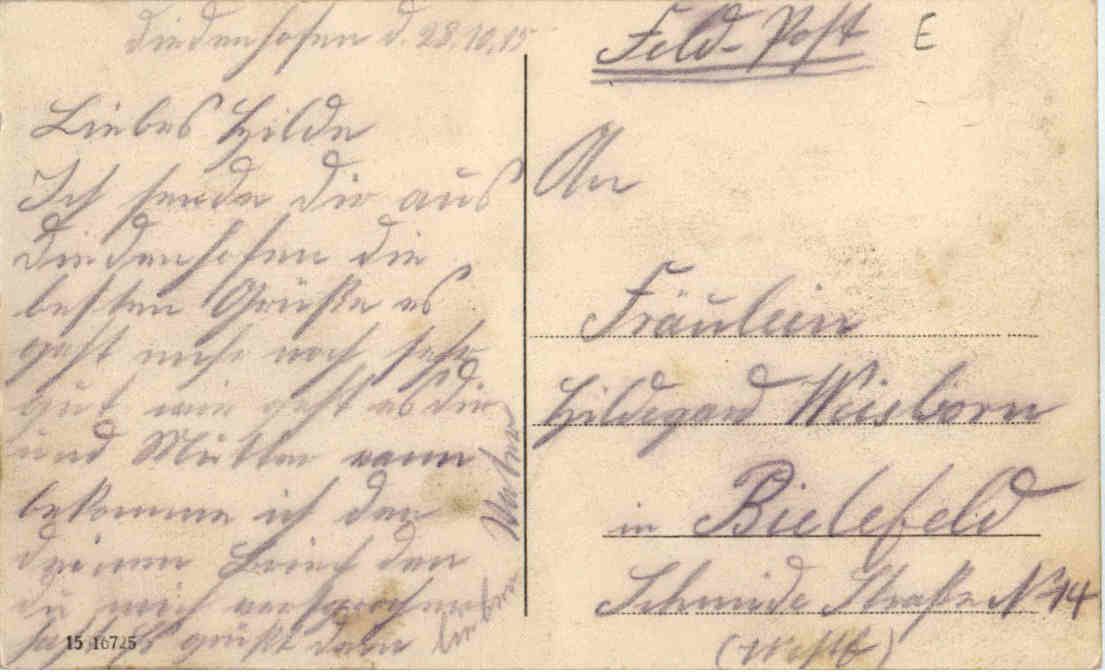 Diedenhofen d. 28.10.15
Liebes Hilde
Ich sende dir aus
Diedenhofen die
besten Grüße es
geht mihr noch sehr
gut wie geht es dir
und Mutter wann
bekomme ich den
deinen Brief den
du mich versprochen
hast Es grüßt dein
lieber
Vater
15 16725
Feld-Post
E
An
Fräulein
Hildegard Weisborn
in Bielefeld
Schmiede Straße No 14
(Westf)